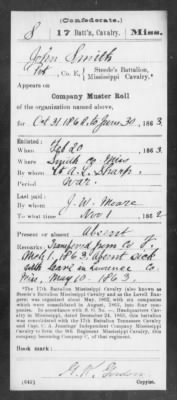 (Confederate.)
S 17 Batt'n, Cavalry. Miss.
John Smith
Pvt, Co. E, Steede's Battalion,
Mississippi Cavalry.*
Appears on
Company Muster Roll
of the organization named above,
for Oct 31 1862 to June 30, 1863.
Enlisted:
When Feb 20, 1863.
Where Smith Co Miss
By whom Lt A. C. Sharp.
Period War.
Last paid:
By whom J. W. Moore
To what time Nov 1, 1862
Present or absent Absent
Remarks: Transfered from Co F.
Mch 1, 1863. Absent sick
with leave in Lawrence Co
Miss, May 10, 1863.
*The 17th Battalion Mississippi Cavalry (also known as
Steede's Battalion Mississippi Cavalry and as the
was organized about May, 1862, with six companies
which were consolidated in August, 1863, into four
companies. In accordance with S. O. No. —, Headquarters Cavalry
in Mississippi, dated December 24, 1863, this battalion
was consolidated with the 17th Battalion Tennessee Cavalry
and Capt. C. A. Jennings' Independent Company Mississippi Cavalry
to form the 9th Regiment Mississippi Cavalry, this
company becoming Company of that regiment.
Book mark:
(642) Copyist.